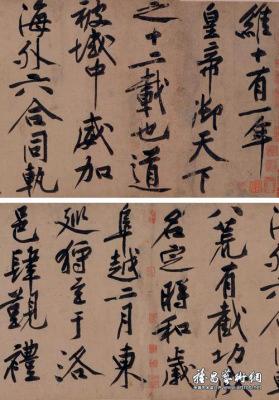 維十有一年
皇帝御天下
之十二載也道
被域中威加
海外六合同軌
八荒有截功
名定時和歲
阜越二月東
巡狩至于洛
邑肆覲禮
雅昌藝術網